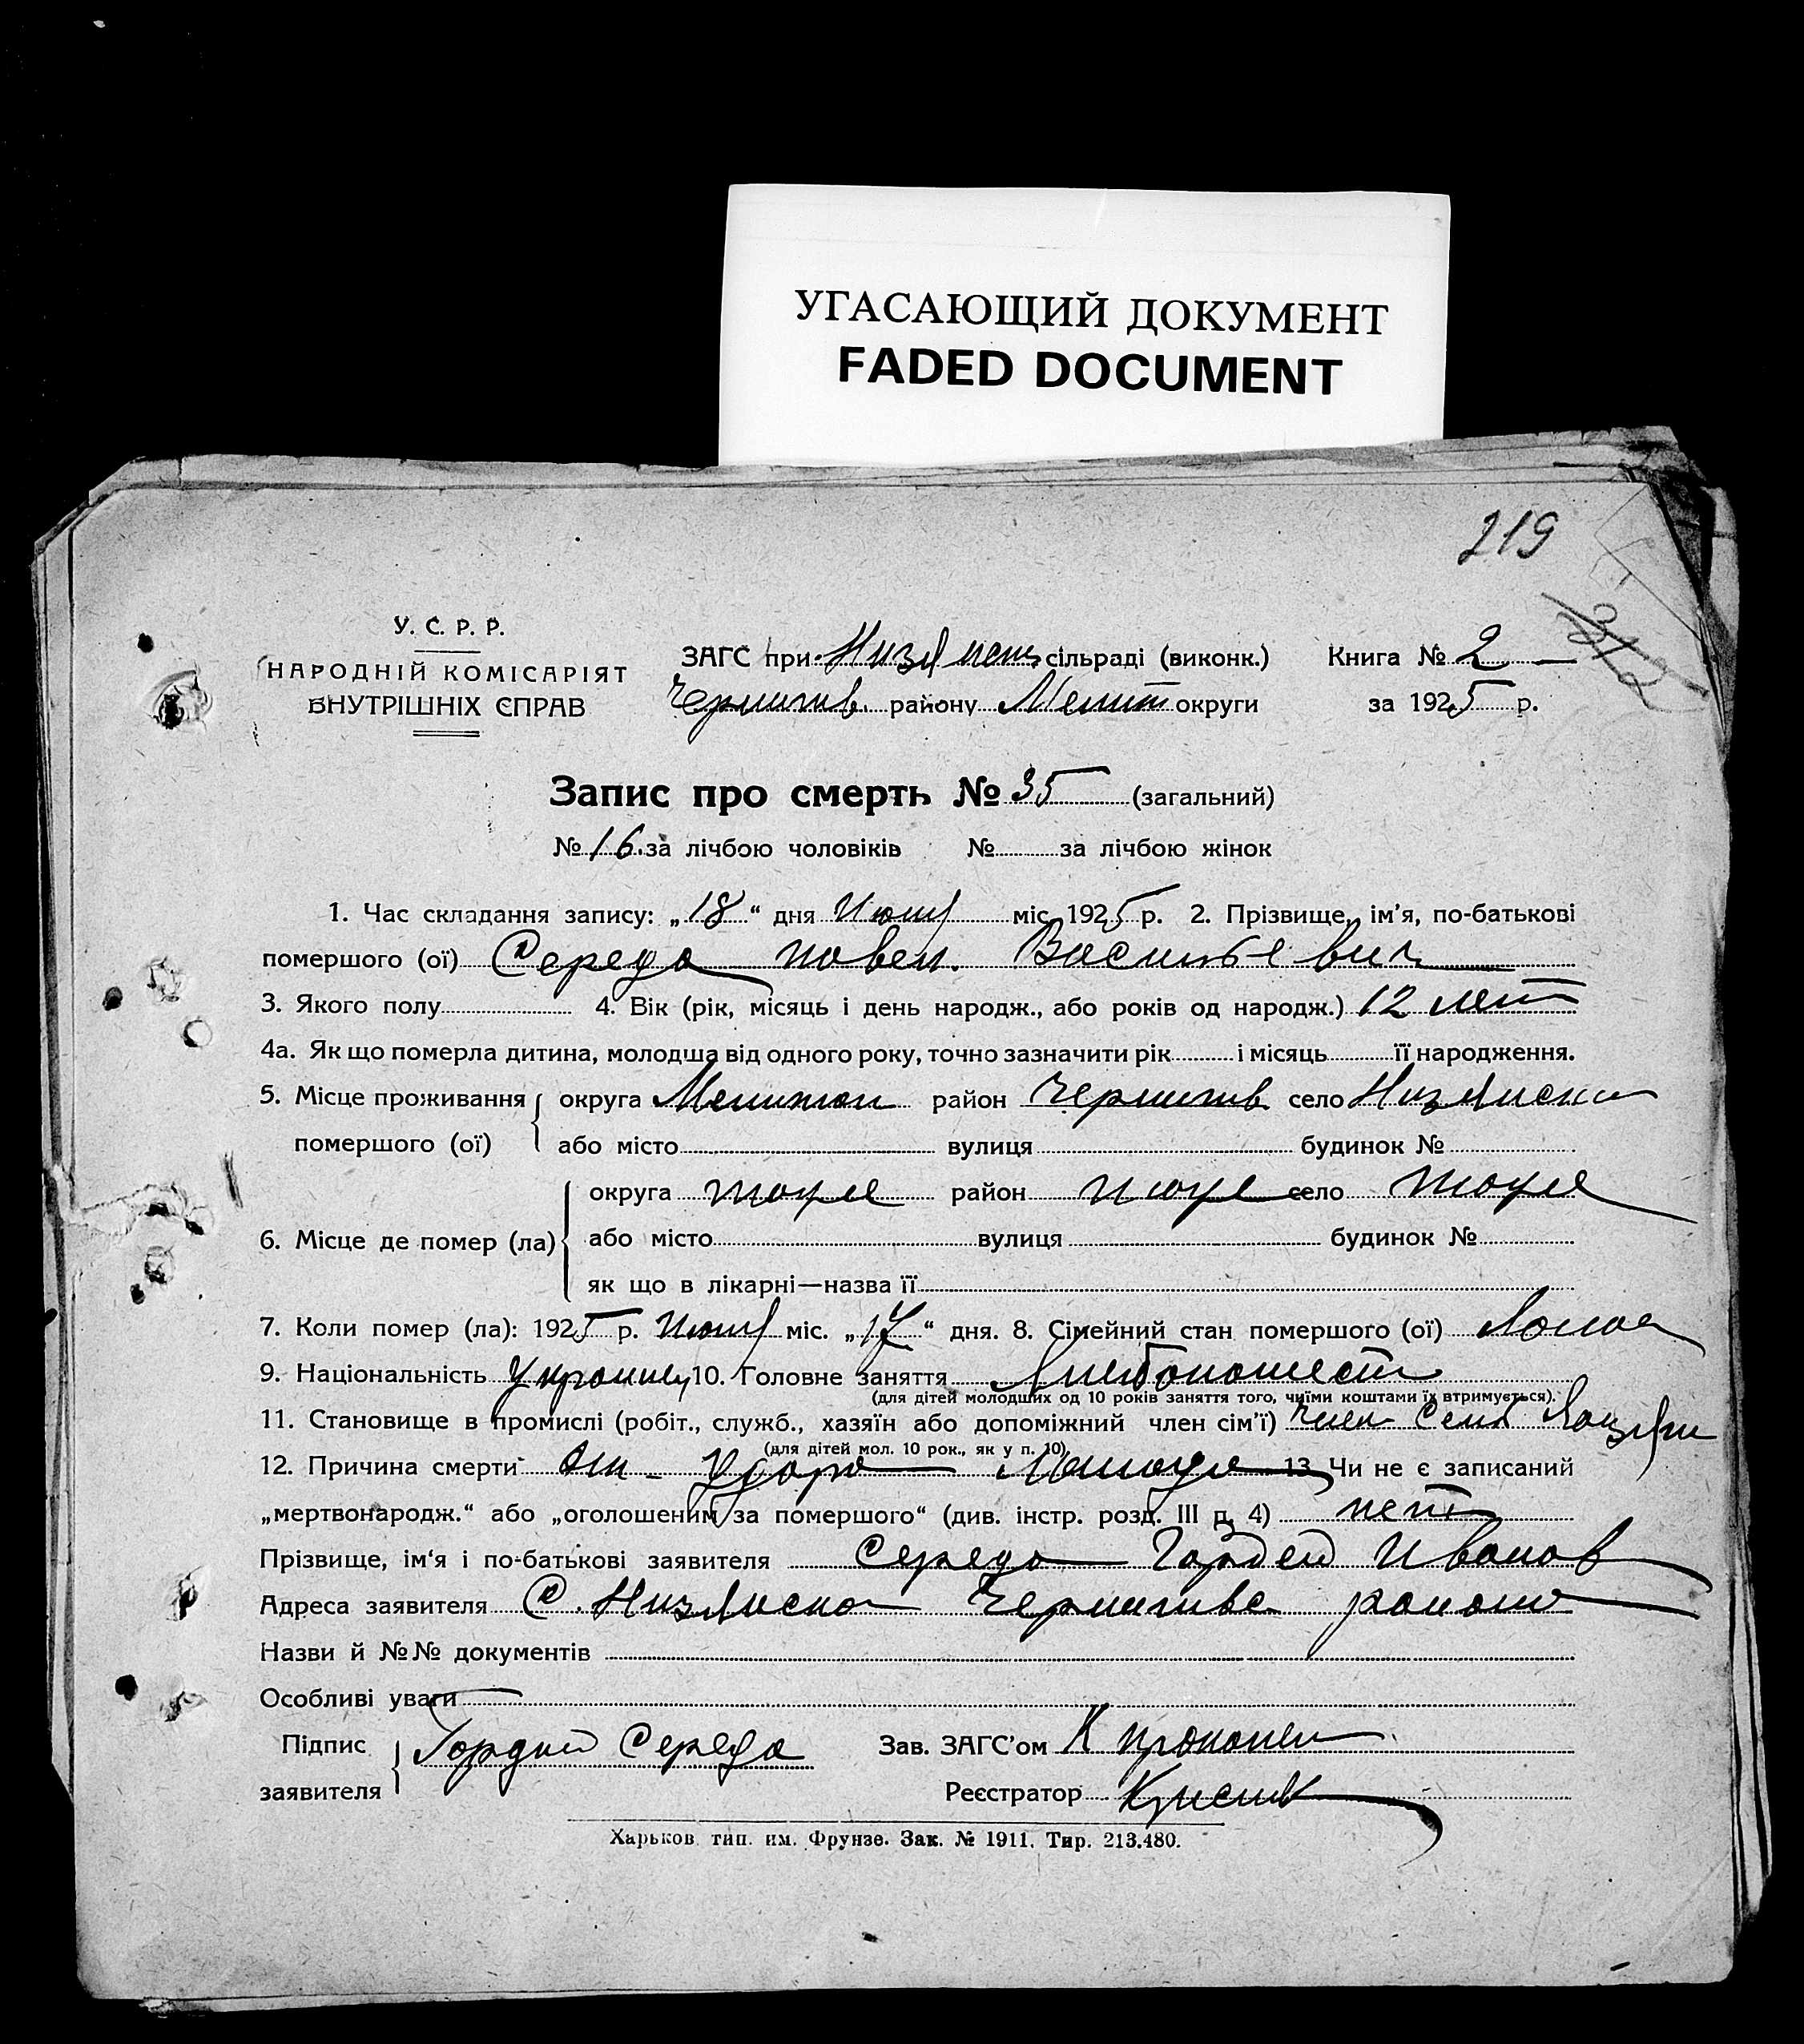 УГАСАЮЩИЙ ДОКУМЕНТ
FADED DOCUMENT
219
У. С. Р. Р.
НАРОДНІЙ КОМІСАРІЯТ
ВНУТРІШНІХ СПРАВ
ЗАГС при сільраді (виконк.) Книга № 2
району Мелит округи за 1925 р.
Запис про смерть № 35 (загальний)
№ 16. за лічбою чоловіків № за лічбою жінок
1. Час складання запису: „18“ дня міс. 1925 р. 2. Прізвище, ім’я, по-батькові
помершого (ої) Середа Павел. Васильевич
3. Якого полу 4. Вік (рік, місяць і день народж., або років од народж.) 12 лет
4а. Як що померла дитина, молодша від одного року, точно зазначити рік і місяць її народження.
5. Місце проживання округа Мелитоп район Чернигив село
помершого (ої) або місто вулиця будинок №
округа район село
6. Місце де помер (ла) або місто вулиця будинок №
як що в лікарні—назва її
7. Коли помер (ла): 1925 р. міс. „17“ дня. 8. Сімейний стан помершого (ої) Холост
9. Національність Украинец 10. Головне заняття Хлебопашест
(для дітей молодших од 10 років заняття того, чиїми коштами їх втримується).
11. Становище в промислі (робіт., служб., хазяїн або допоміжний член сім’ї) член сем
(для дітей мол. 10 рок., як у п. 10)
12. Причина смерти От удара 13. Чи не є записаний
„мертвонародж.“ або „оголошеним за помершого“ (див. інстр. розд. III п. 4) нет
Прізвище, ім’я і по-батькові заявителя Середа Гордей Иванов
Адреса заявителя С. района
Назви й №№ документів
Особливі уваги
Підпис Гордий Середа Зав. ЗАГС’ом
заявителя Реєстратор
Харьков. тип. им. Фрунзе. Зак. № 1911. Тир. 213.480.